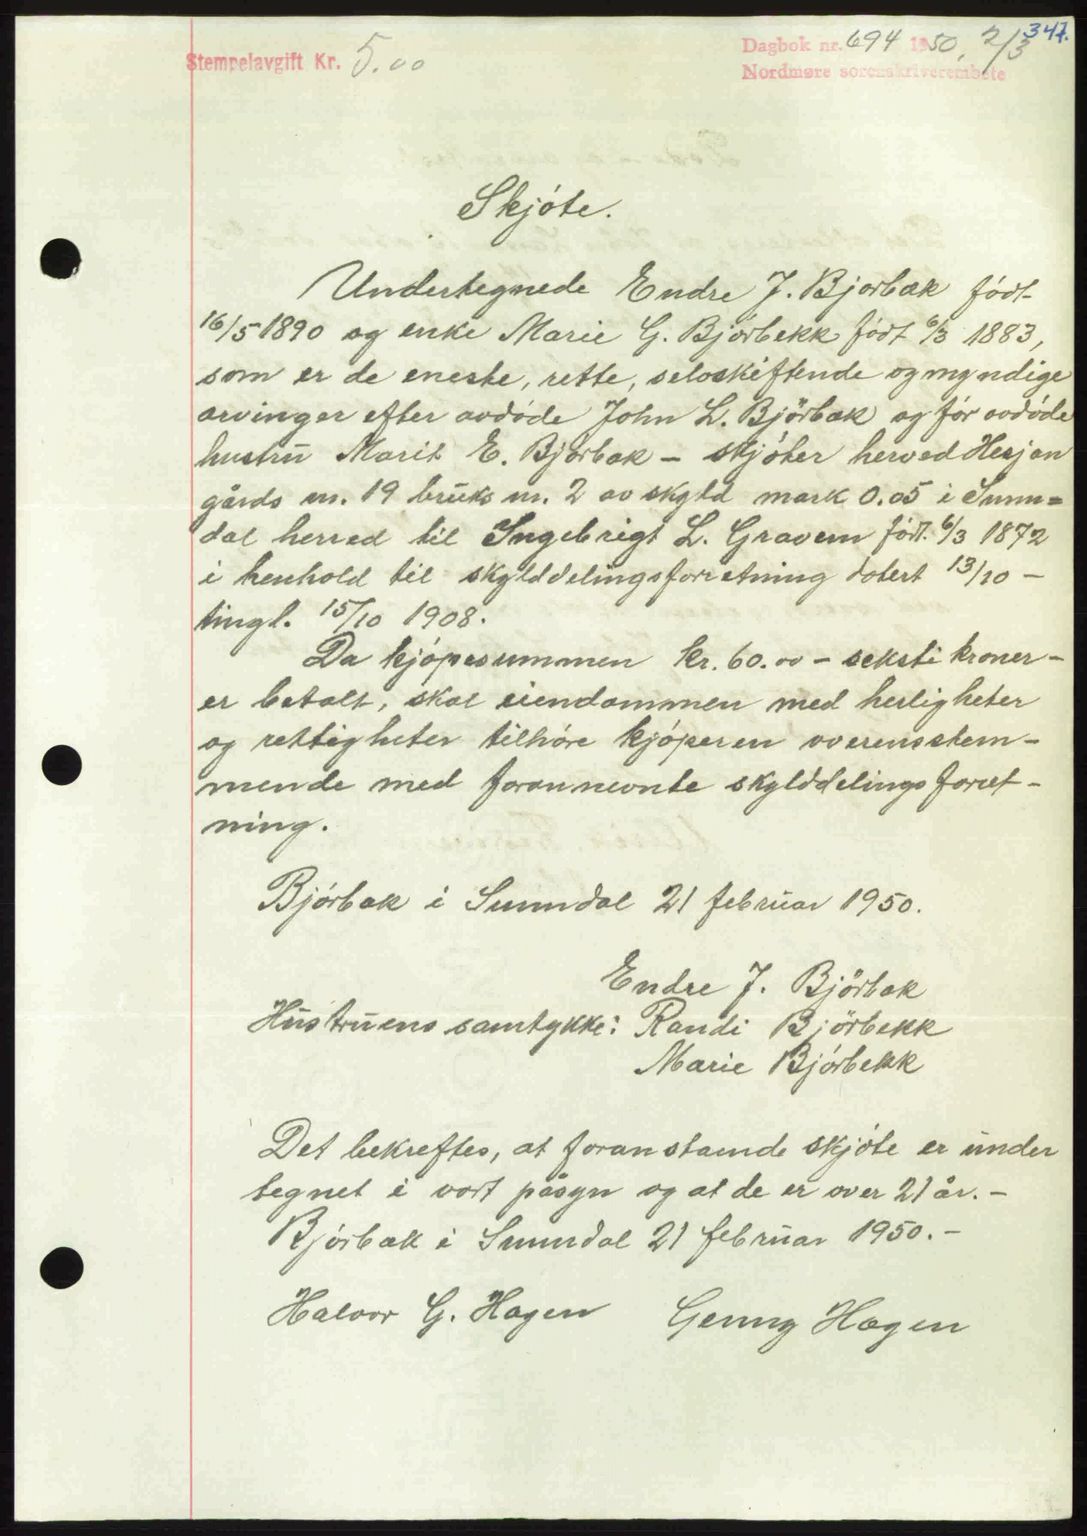 347.
Stempelavgift Kr. 5.00
Dagbok nr. 694 1950, 2/3
Nordmøre sorenskriverembete
Skjöte.
Undertegnede Endre J. Bjørbæk født
16/5 1890 og enke Marie G. Bjørbekk født 6/3 1883,
som er de eneste, rette, seloskiftende og myndige
arvinger efter avdøde John L. Björbæk og før avdøde
hustru Marit E. Bjørbæk - skjöter herved Hesjan
gårds nr. 19 bruks nr. 2 av skyld mark 0.05 i Sunn=
dal herred til Ingebrigt L. Gravem født 6/3 1872
i henhold til skylddelingsforretning datert 13/10 -
tingl. 15/10 1908.
Da kjøpesummen kr. 60.00 - seksti kroner -
er betalt, skal eiendommen med herligheter
og rettigheter tilhøre kjøperen overensstem-
mende med forannevnte skylddelingsforret-
ning.
Bjørbæk i Sunndal 21 februar 1950.
Endre J. Bjørbæk
Hustruens samtykke: Randi Bjørbekk
Marie Bjørbekk
Det bekreftes, at foranstaende skjöte er under
tegnet i vort påsyn og at de er over 21 år. -
Bjørbæk i Sunndal 21 februar 1950. -
Halvor G. Hagen Genny Hagen